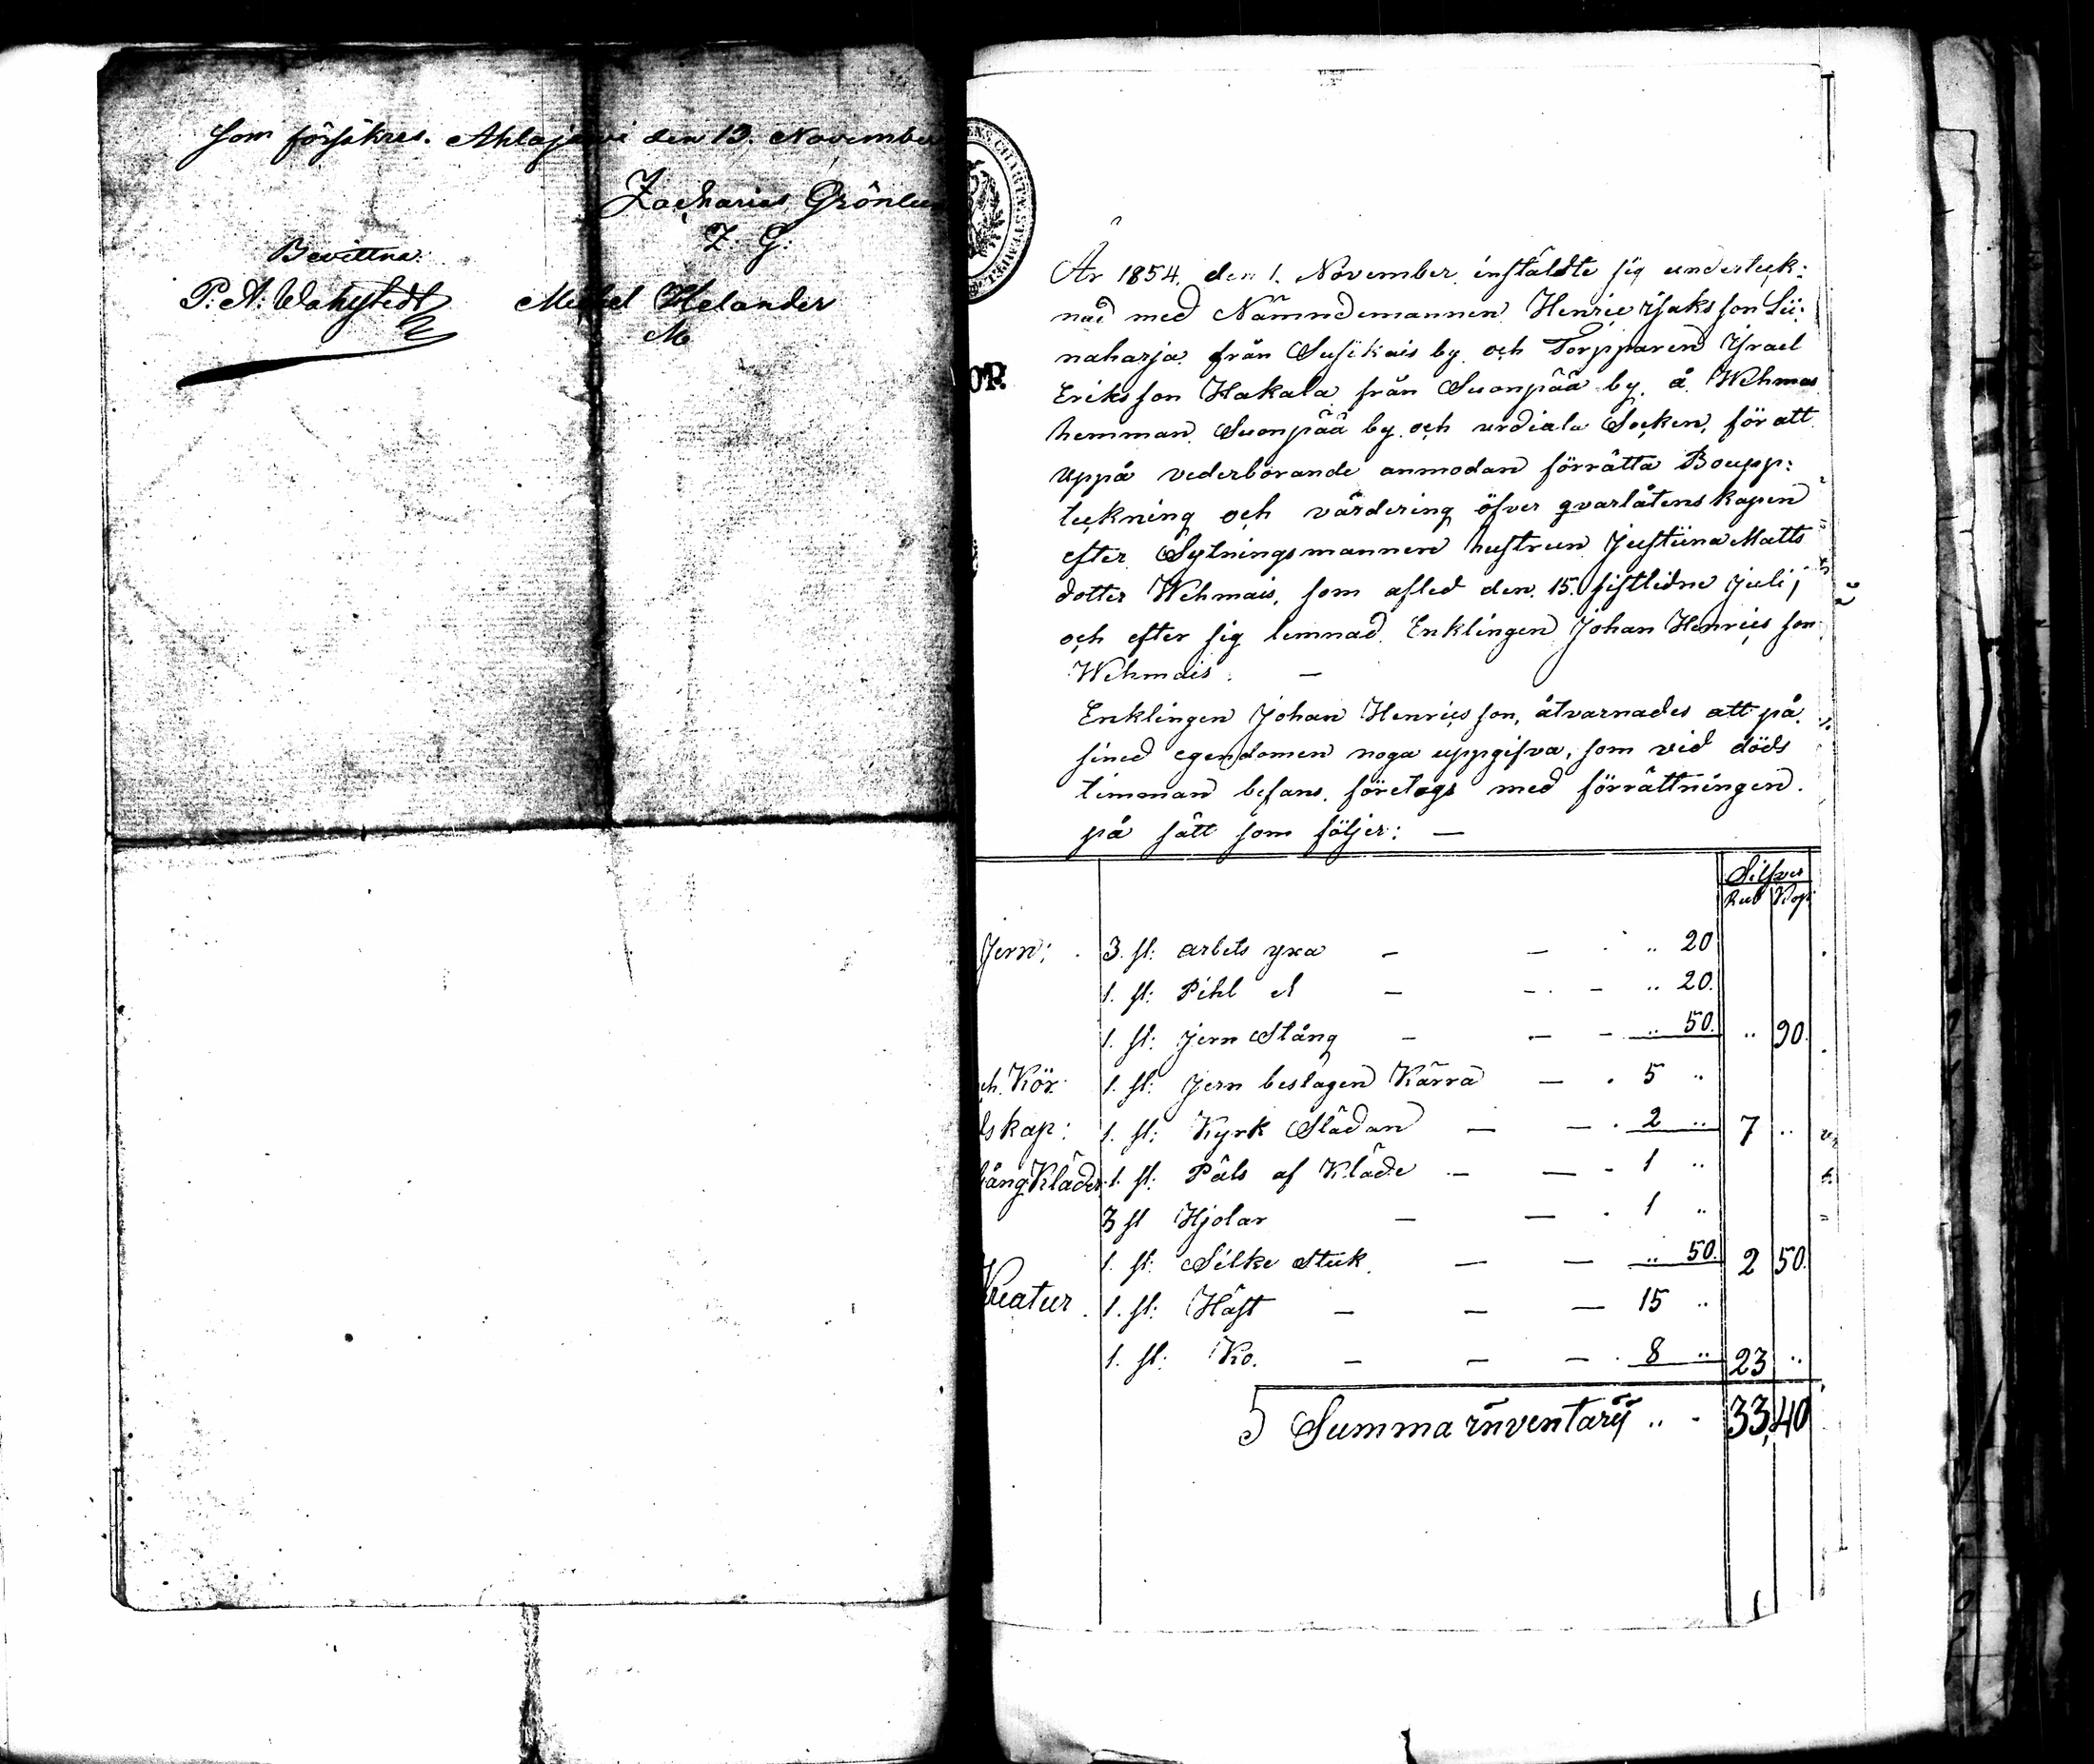 som försäkras. Ahlajerwi den 13. November
Zacharias Grönlu
Z. G.
Bevittna:
P. A. Wahlstedt Michel Helander
M
År 1854, den 1. November instäldte sig underteck:
nad med Nämndemannen Henric Isaksson Lii:
naharja från Susikais by och Torpparen Israel
Eriksson Hakala från Suonpää by, å Wehmas
hemman Suonpää by och urdiala Socken, för att
uppå vederbörande anmodan förrätta Boupp:
teckning och värdering öfver qvarlåtenskapen
efter Sytningsmannen hustrun Justiina Matts
dotter Wehmais, som afled den 15. sistlidne Julij
och efter sig lemnad Enklingen Johan Henrics son
Wehmais. —
Enklingen Johan Henrics son, åtvarnades att på
sined egendomen noga uppgifva, som vid döds
timman befans, företogs med förrättningen
på sätt som följer: —
Silfver
Rub Kop
Jern: 3. st: arbets yxa — — .. 20
1. st: Pihl — — — .. 20.
1. st: Jern Stång — — — .. 50. .. 90.
ch. Kör: 1. st: Jern beslagen Kärra — . 5 ..
dskap: 1. st: Kyrk Slädan — — . 2 .. 7 ..
Gång Kläder 1. st: Päls af Kläde — — - 1 ..
3 st Kjolar — — . 1 ..
1. st: Silke stuk — — .. 50. 2 50.
Kreatur. 1. st: Häst — — — 15 ..
1. st: Ko. — — — . 8 .. 23 ..
Summa inventarij .. - 33,40